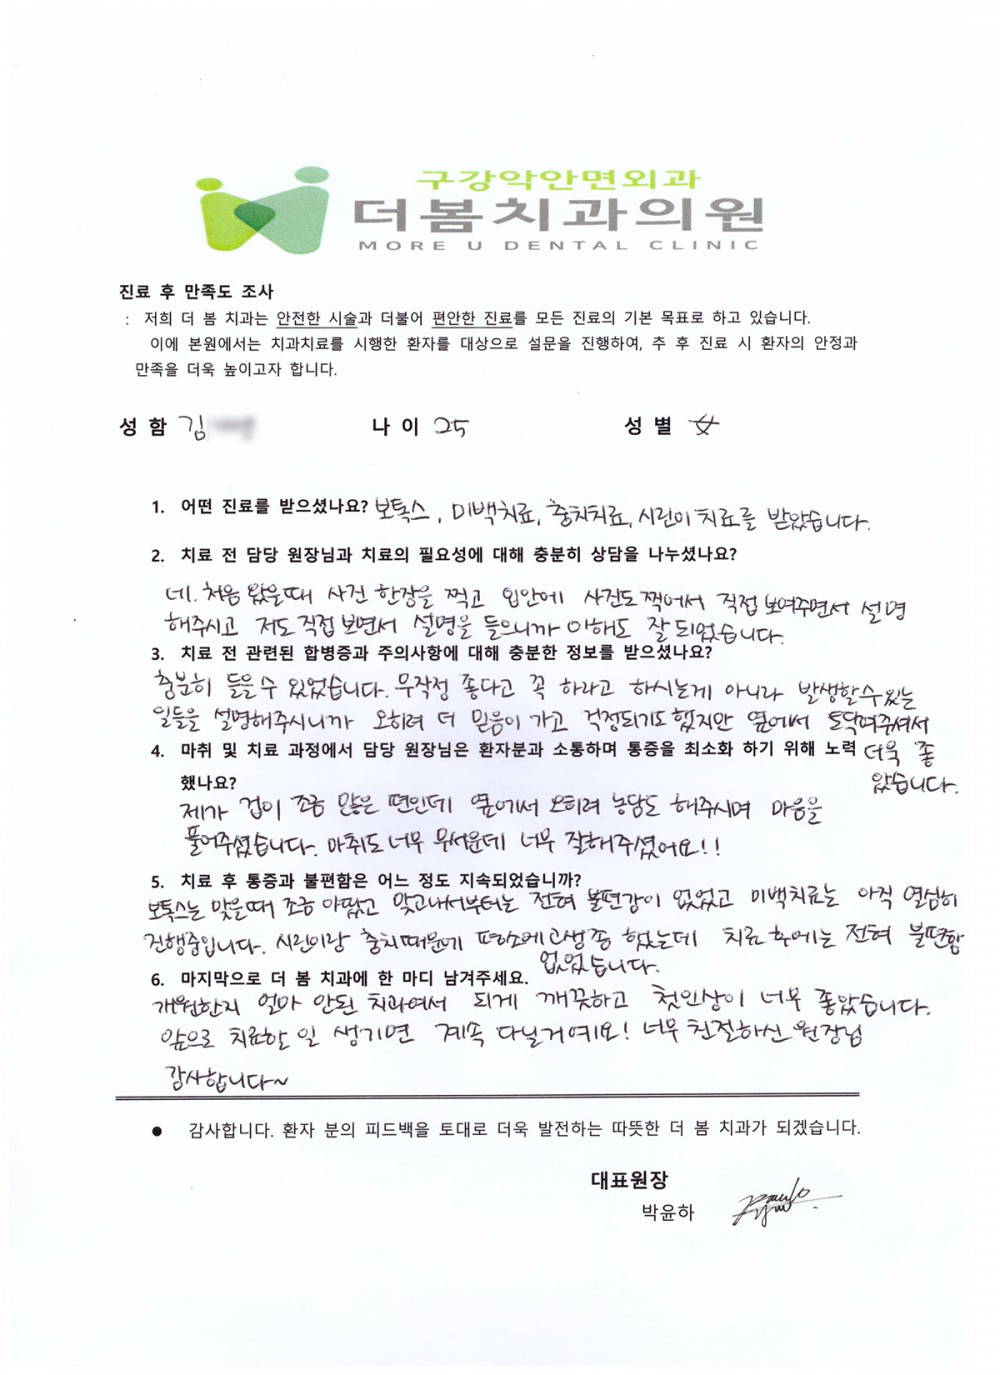 구강악안면외과
더봄치과의원
MORE U DENTAL CLINIC
진료 후 만족도 조사
: 저희 더 봄 치과는 안전한 시술과 더불어 편안한 진료를 모든 진료의 기본 목표로 하고 있습니다.
이에 본원에서는 치과치료를 시행한 환자를 대상으로 설문을 진행하여, 추 후 진료 시 환자의 안정과
만족을 더욱 높이고자 합니다.
성 함 김 나 이 25 성 별 女
1. 어떤 진료를 받으셨나요? 보톡스, 미백치료, 충치치료, 시린이 치료를 받았습니다.
2. 치료 전 담당 원장님과 치료의 필요성에 대해 충분히 상담을 나누셨나요?
네. 처음 왔을때 사진 한장을 찍고 입안에 사진도 찍어서 직접 보여주면서 설명
해주시고 저도 직접 보면서 설명을 들으니까 이해도 잘 되었습니다.
3. 치료 전 관련된 합병증과 주의사항에 대해 충분한 정보를 받으셨나요?
충분히 들을 수 있었습니다. 무작정 좋다고 꼭 하라고 하시는게 아니라 발생할수있는
일들을 설명해주시니까 오히려 더 믿음이 가고 걱정되기도 했지만 옆에서 토닥여주셔서
4. 마취 및 치료 과정에서 담당 원장님은 환자분과 소통하며 통증을 최소화 하기 위해 노력 더욱 좋
했나요? 았습니다.
제가 겁이 조금 많은 편인데 옆에서 오히려 농담도 해주시며 마음을
풀어주셨습니다. 마취도 너무 무서운데 너무 잘해주셨어요!!
5. 치료 후 통증과 불편함은 어느 정도 지속되었습니까?
보톡스는 맞을때 조금 아팠고 맞고나서부터는 전혀 불편감이 없었고 미백치료는 아직 열심히
진행중입니다. 시린이랑 충치때문에 평소에 고생좀 했는데 치료 후에는 전혀 불편함
없었습니다.
6. 마지막으로 더 봄 치과에 한 마디 남겨주세요.
개원한지 얼마 안된 치과여서 되게 깨끗하고 첫인상이 너무 좋았습니다.
앞으로 치료할 일 생기면 계속 다닐거예요! 너무 친절하신 원장님
감사합니다~
● 감사합니다. 환자 분의 피드백을 토대로 더욱 발전하는 따뜻한 더 봄 치과가 되겠습니다.
대표원장
박윤하